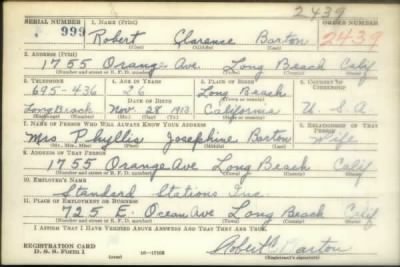 2439
SERIAL NUMBER 1. NAME (Print) ORDER NUMBER
999 Robert Clarence Barton 2439
(First) (Middle) (Last)
2. ADDRESS (Print)
1755 Orange Ave. Long Beach Calif
(Number and street or R. F. D. number) (Town) (County) (State)
3. TELEPHONE 4. AGE IN YEARS 5. PLACE OF BIRTH 6. COUNTRY OF CITIZENSHIP
695-436 26 Long Beach
DATE OF BIRTH (Town or county)
Long Beach Nov. 28 1913 California U.S.A
(Exchange) (Number) (Mo.) (Day) (Yr.) (State or country)
7. NAME OF PERSON WHO WILL ALWAYS KNOW YOUR ADDRESS 8. RELATIONSHIP OF THAT PERSON
Mrs Phyllis Josephine Barton Wife
(Mr., Mrs., Miss) (First) (Middle) (Last)
9. ADDRESS OF THAT PERSON
1755 Orange Ave Long Beach Calif
(Number and street or R. F. D. number) (Town) (County) (State)
10. EMPLOYER'S NAME
Standard Stations Inc.
11. PLACE OF EMPLOYMENT OR BUSINESS
725 E. Ocean Ave Long Beach Calif
(Number and street or R. F. D. number) (Town) (County) (State)
I AFFIRM THAT I HAVE VERIFIED ABOVE ANSWERS AND THAT THEY ARE TRUE.
REGISTRATION CARD
D. S. S. Form 1
Robert C Barton
(Registrant's signature)